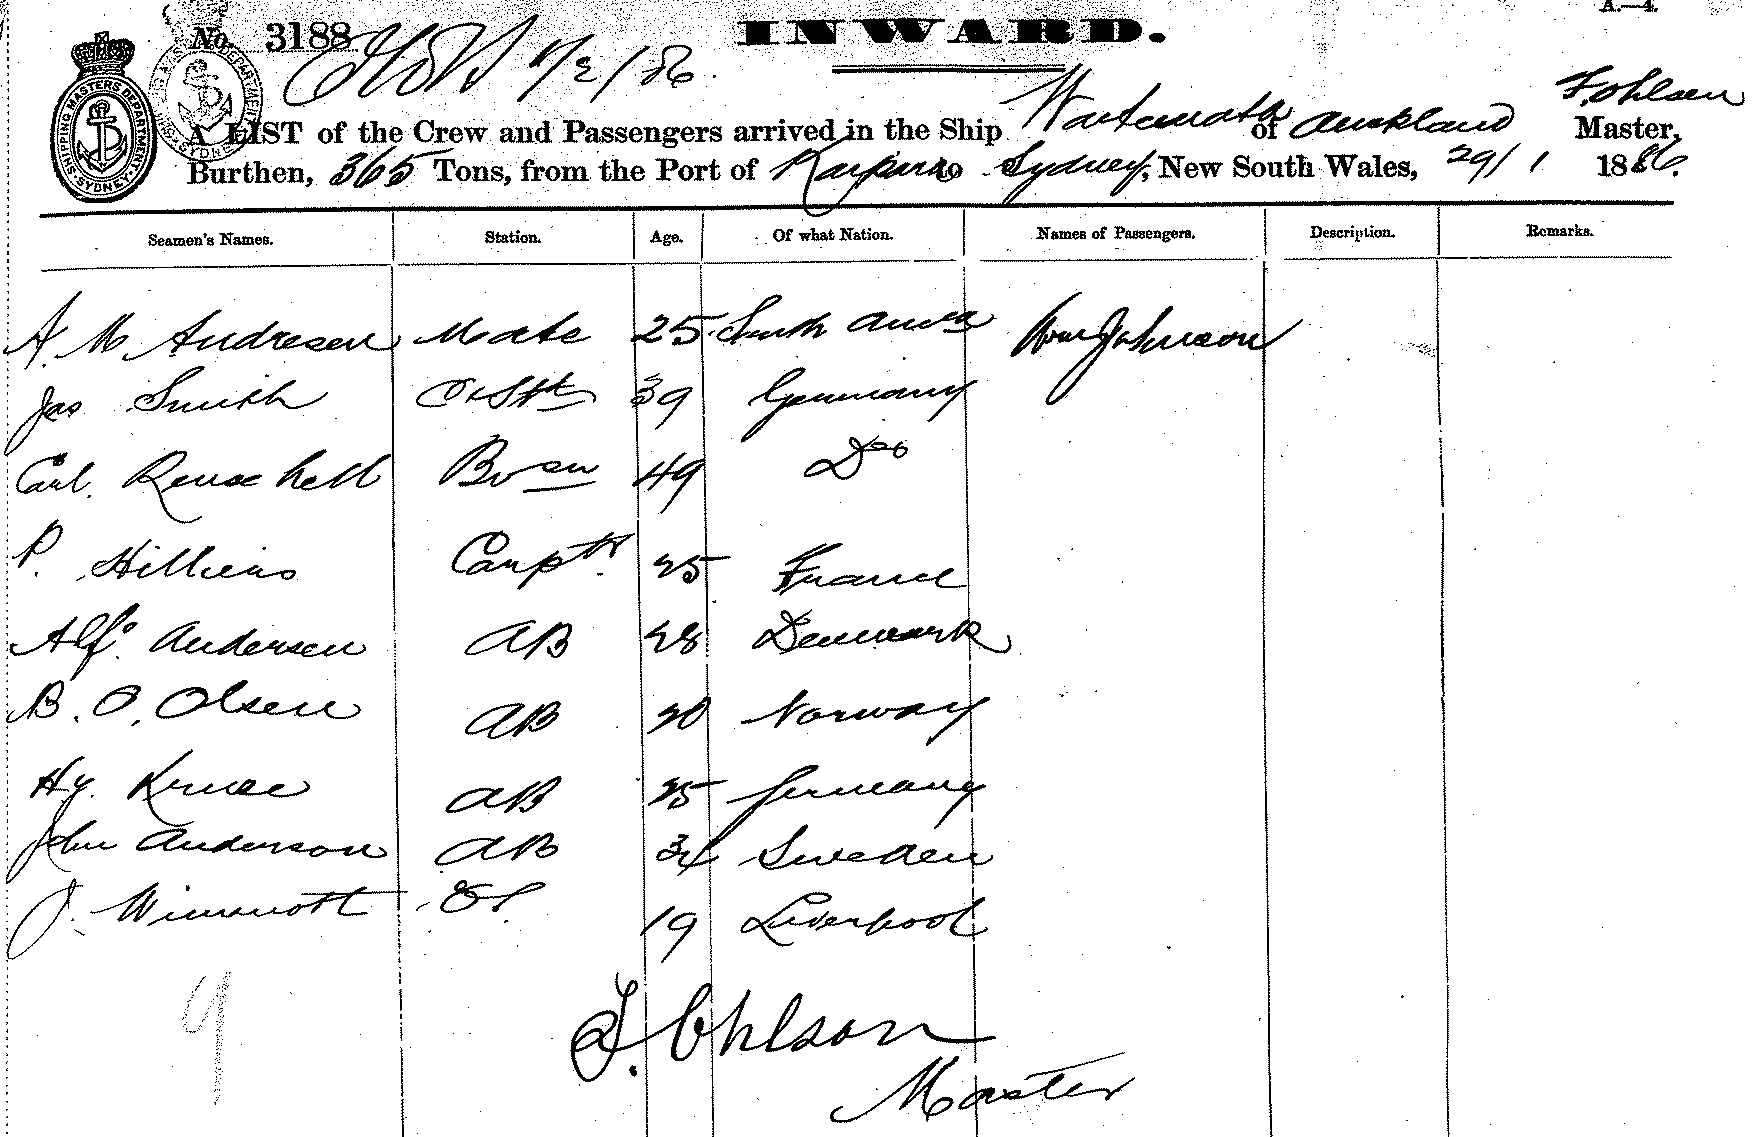 A.—4.
No. 3188
INWARD.
1/2/86.
F. Ohlsen
A LIST of the Crew and Passengers arrived in the Ship of Auckland Master,
Burthen, 365 Tons, from the Port of to Sydney, New South Wales, 29/1 1886.
SHIPPING MASTERS DEPARTMENT SYDNEY
Seamen's Names. Station. Age. Of what Nation. Names of Passengers. Description. Remarks.
A. M Andresen Mate 25 South Amca Wm Johnson
Jas Smith 39 Germany
Carl Bosn 49 Do
P. Carptr. 25 France
Alf. Andersen AB 28 Denmark
B. O. Olsen AB 20 Norway
Hy. Kruse AB 25 Germany
John Anderson AB 34 Sweden
J. OS. 19 Liverpool
9
F. Ohlson
Master